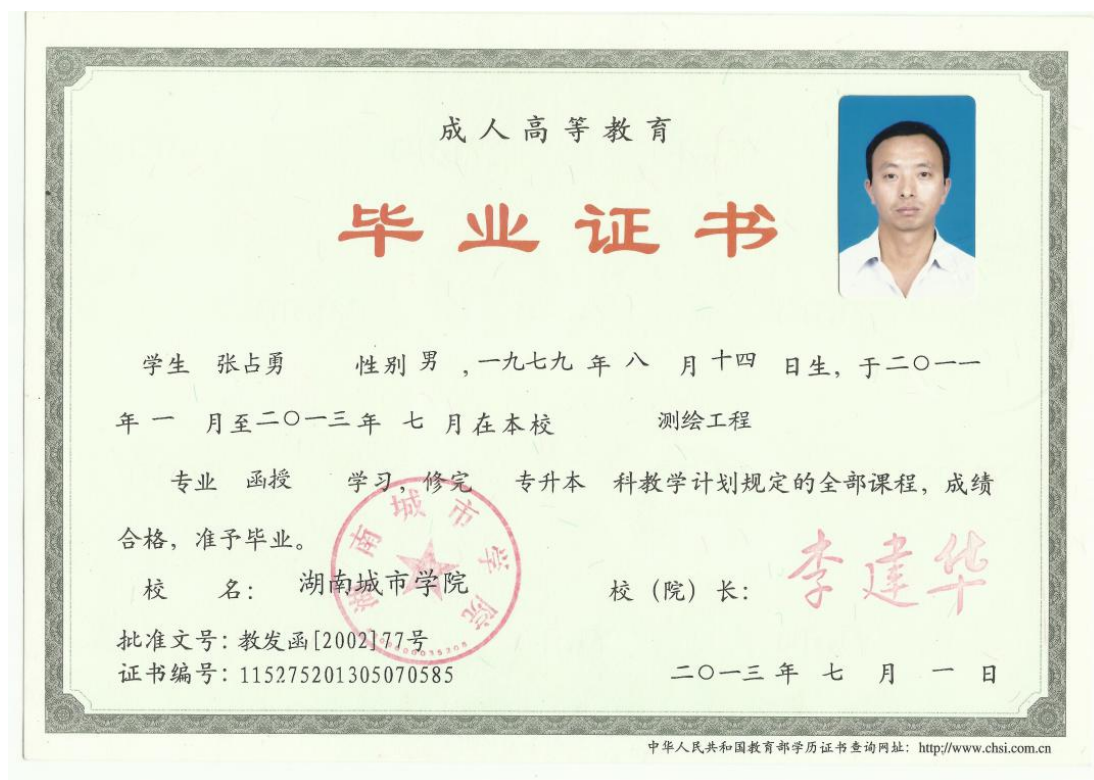 成人高等教育
毕业证书
学生 张占勇 性别 男 ,一九七九 年 八 月 十四 日生, 于二〇一一
年 一 月至二〇一三年 七 月在本校 测绘工程
专业 函授 学习, 修完 专升本 科教学计划规定的全部课程, 成绩
合格, 准予毕业。
湖南城市学院
校 名: 湖南城市学院 校(院)长: 李建华
批准文号: 教发函[2002]77号
证书编号: 115275201305070585 二〇一三 年 七 月 一 日
中华人民共和国教育部学历证书查询网址: http://www.chsi.com.cn